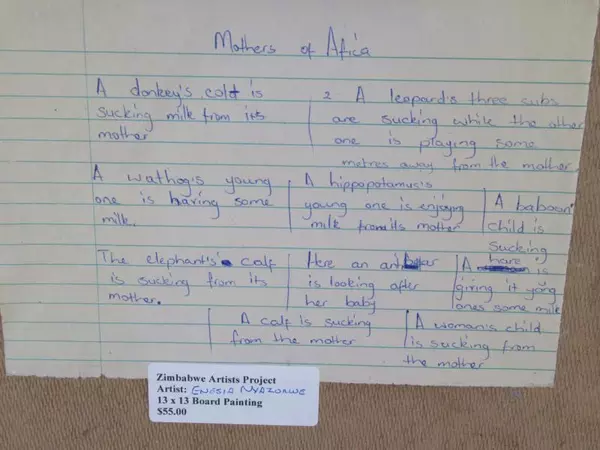 Mothers of Africa
A donkey's colt is
sucking milk from its
mother
2 A leopard's three cubs
are sucking while the other
one is playing some
metres away from the mother.
A wathog's young
one is having some
milk.
A hippopotamus's
young one is enjoying
milk from its mother
A baboon'
child is
sucking
The elephant's calf
is sucking from its
mother.
Here an ant
is looking after
her baby
A hare is
giving it yong
ones some milk
A calf is sucking
from the mother
A woman's child
is sucking from
the mother
Zimbabwe Artists Project
Artist: ENESIA NYAZORWE
13 x 13 Board Painting
$55.00